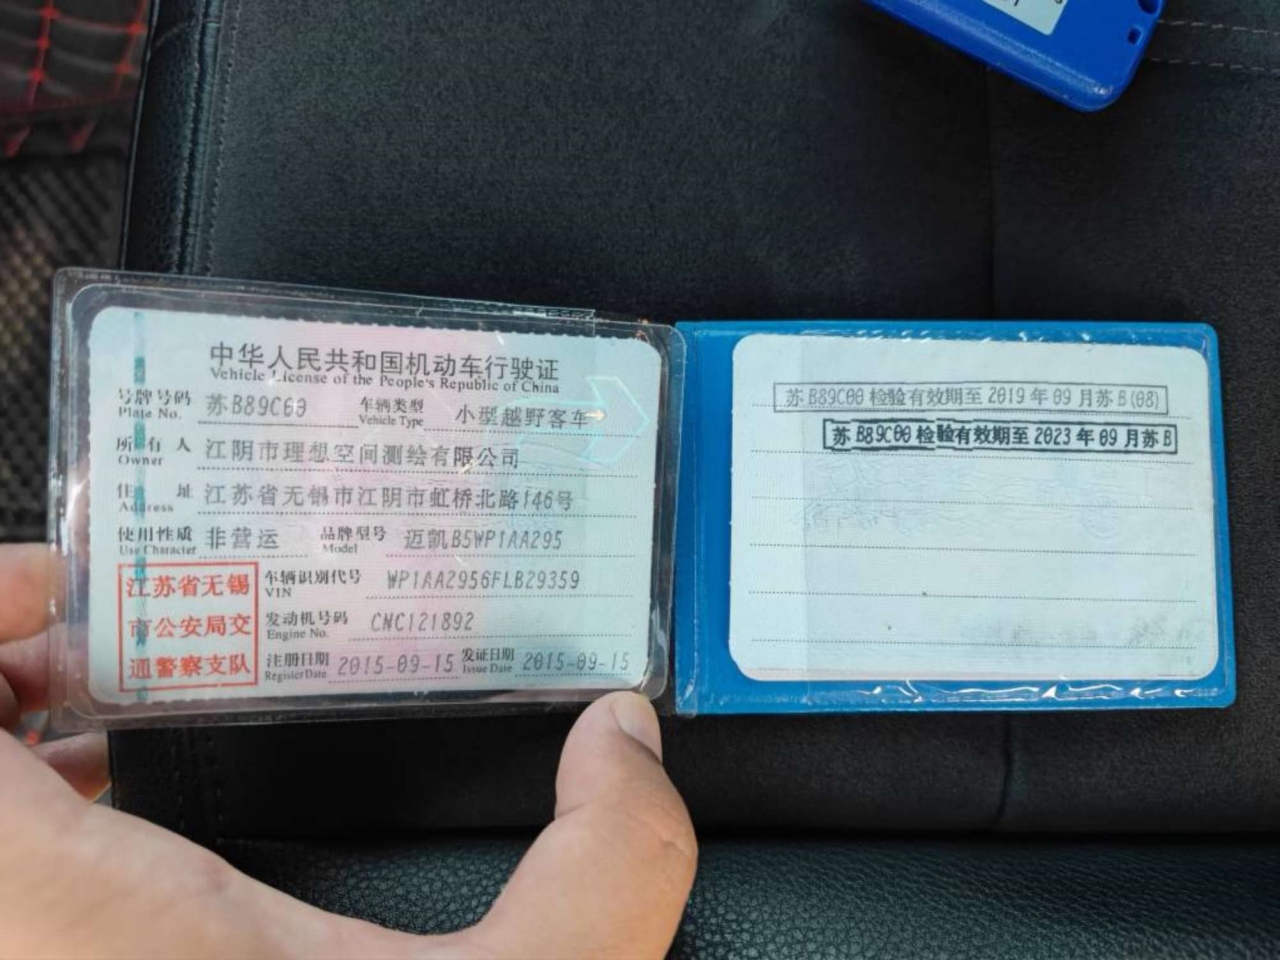 中华人民共和国机动车行驶证
Vehicle License of the People's Republic of China
号牌号码 苏B89C60 车辆类型 小型越野客车
Plate No. Vehicle Type
所有人 江阴市理想空间测绘有限公司
Owner
住址 江苏省无锡市江阴市虹桥北路146号
Address
使用性质 非营运 品牌型号 迈凯B5WP1AA295
Use Character Model
江苏省无锡
市公安局交
通警察支队
车辆识别代号 WP1AA2956FLB29359
VIN
发动机号码 CNC121892
Engine No.
注册日期 2015-09-15 发证日期 2015-09-15
Register Date Issue Date
苏B89C00 检验有效期至2019年09月苏B(08)
苏B89C00检验有效期至2023年09月苏B